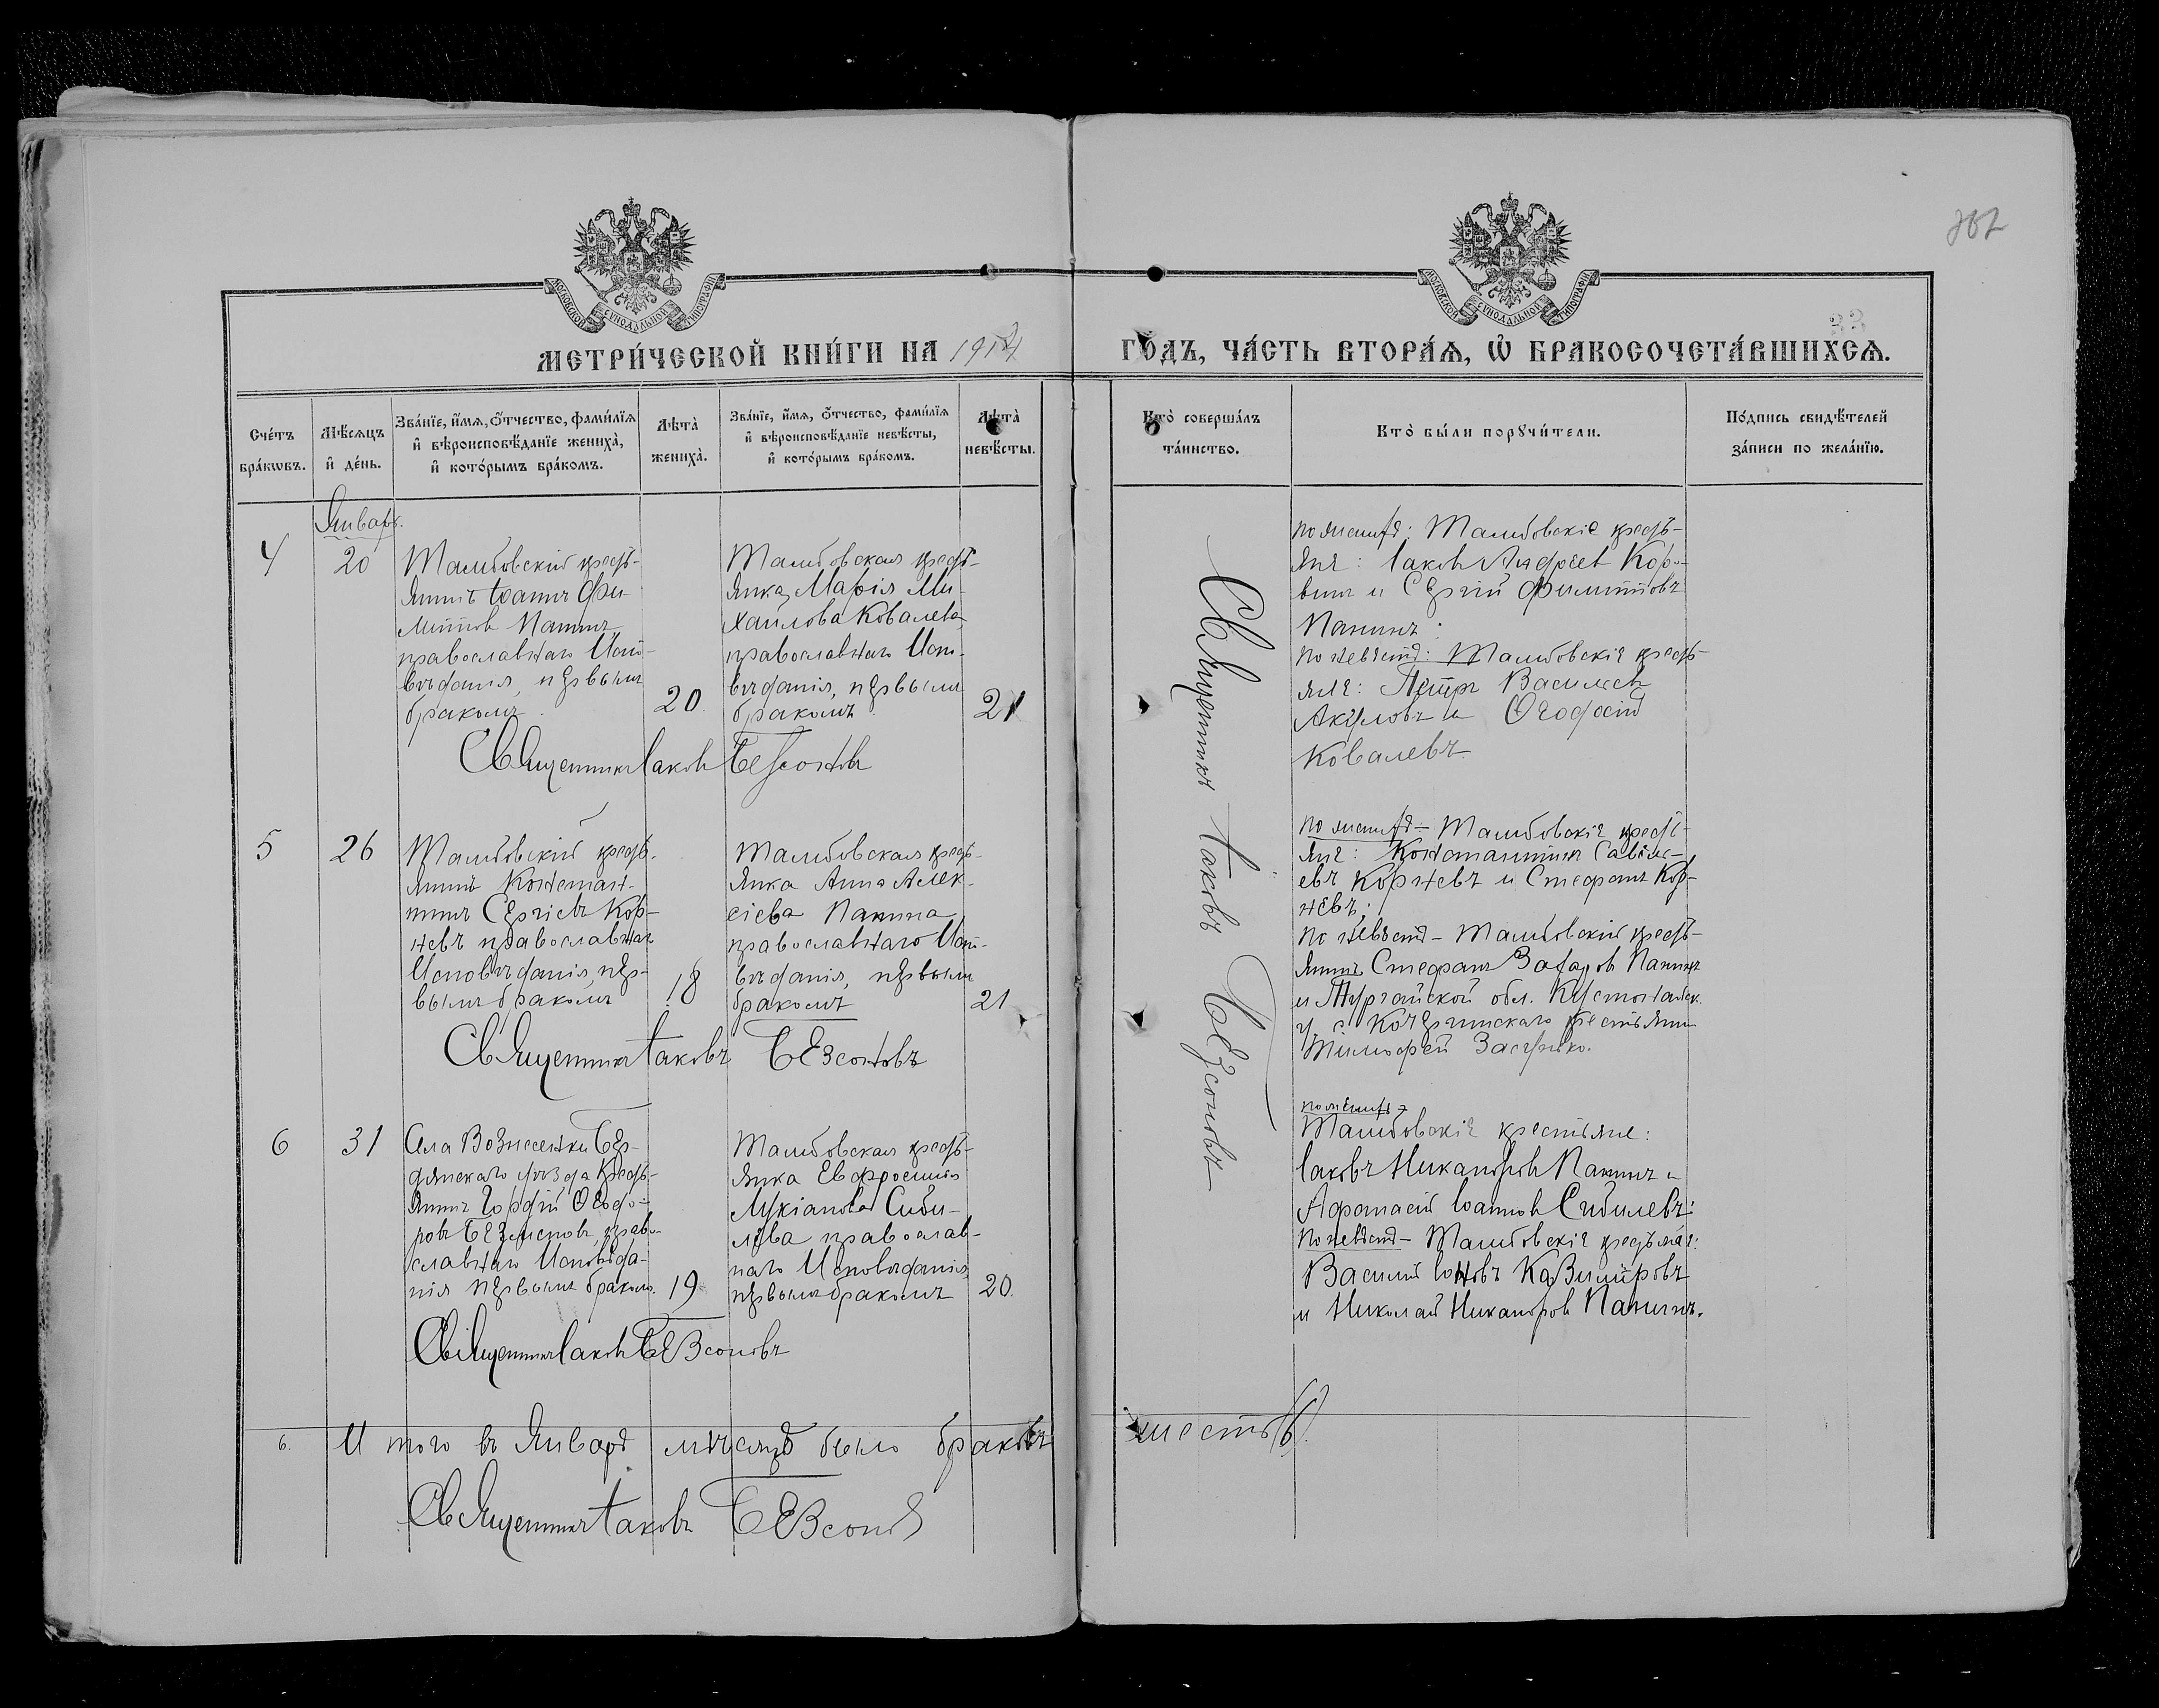 362
МОСКОВСКОЙ СѴНОДАЛЬНОЙ ТИПОГРАФІИ
МОСКОВСКОЙ СѴНОДАЛЬНОЙ ТИПОГРАФІИ
33
МЕТРИ́ЧЕСКОЙ КНИ́ГИ НА 1914 ГО́ДЪ, ЧА́СТЬ ВТОРА́Я, Ѡ҆ БРАКОСОЧЕТА́ВШИХСЯ.
Сче́тъ
бра́кѡвъ.
Мѣ́сяцъ
и҆ де́нь.
Зва́нїе, и҆́мя, ѻ҆́тчество, фами́лїя
и҆ вѣроисповѣ́данїе жениха̀,
и҆ кото́рымъ бра́комъ.
Лѣ́та̀
жениха̀.
Зва́нїе, и҆́мя, ѻ҆́тчество, фами́лїя
и҆ вѣроисповѣ́данїе невѣ́сты,
и҆ кото́рымъ бра́комъ.
Лѣ́та̀
невѣ́сты.
Кто̀ соверша́лъ
та́инство.
Кто̀ бы́ли порꙋчи́тели.
По́дпись свидѣ́телей
за́писи по жела́нїю.
Январь.
4
20
Тамбовскій кресть-
янинъ Іоаннъ Фи-
липпов Панинъ,
православнаго Испо-
вѣданія, первымъ
бракомъ.
20.
Тамбовская кресть-
янка, Марія Ми-
хаилова Ковалева,
православнаго Испо-
вѣданія, первымъ
бракомъ.
21
Священникъ Іаковъ Безсоновъ
Священникъ Іаковъ Безсоновъ
по женихѣ: Тамбовскіе кресть-
яне: Іаковъ Андреев Коро-
винъ и Сергій Филипповъ
Панинъ;
по невѣстѣ: Тамбовскіе кресть-
яне: Петръ Васильевъ
Акуловъ и Ѳеодосій
Ковалевъ.
5
26
Тамбовскій кресть-
янинъ Констан-
тинъ Сергіевъ Кор-
невъ православнаго
Исповѣданія, пер-
вымъ бракомъ
18
Тамбовская кресть-
янка Анна Алек-
сіева Панина
православнаго Испо-
вѣданія, первымъ
бракомъ
21
Священникъ Іаковъ Безсоновъ
по женихѣ – Тамбовскіе кресть-
яне: Константинъ Савель-
евъ Корневъ и Стефанъ Кор-
невъ;
по невѣстѣ – Тамбовскій кресть-
янинъ Стефанъ Захаров Панинъ
и Тургайской обл. Кустанайск.
у. с. крестьянин
Тимофей
6
31
Села Вознесенки Бер-
дянскаго уѣзда кресть-
янинъ Гордій Ѳеодо-
ровъ право-
славнаго Исповѣда-
нія первымъ бракомъ.
19
Тамбовская кресть-
янка Евфросинія
Лукіанова Сиби-
лева православ-
наго Исповѣданія,
первымъ бракомъ
20.
Священникъ Іаковъ Безсоновъ
по женихѣ –
Тамбовскіе крестьяне:
Іаковъ Никаноров Панинъ и
Афанасій Іоаннов Сибилевъ;
по невѣстѣ – Тамбовскіе крестьяне:
Василій Іоновъ Казимировъ
и Николай Никаноров Панинъ.
6.
И того въ Январѣ мѣсяцѣ было браковъ шесть (6).
Священникъ Іаковъ Безсоновъ